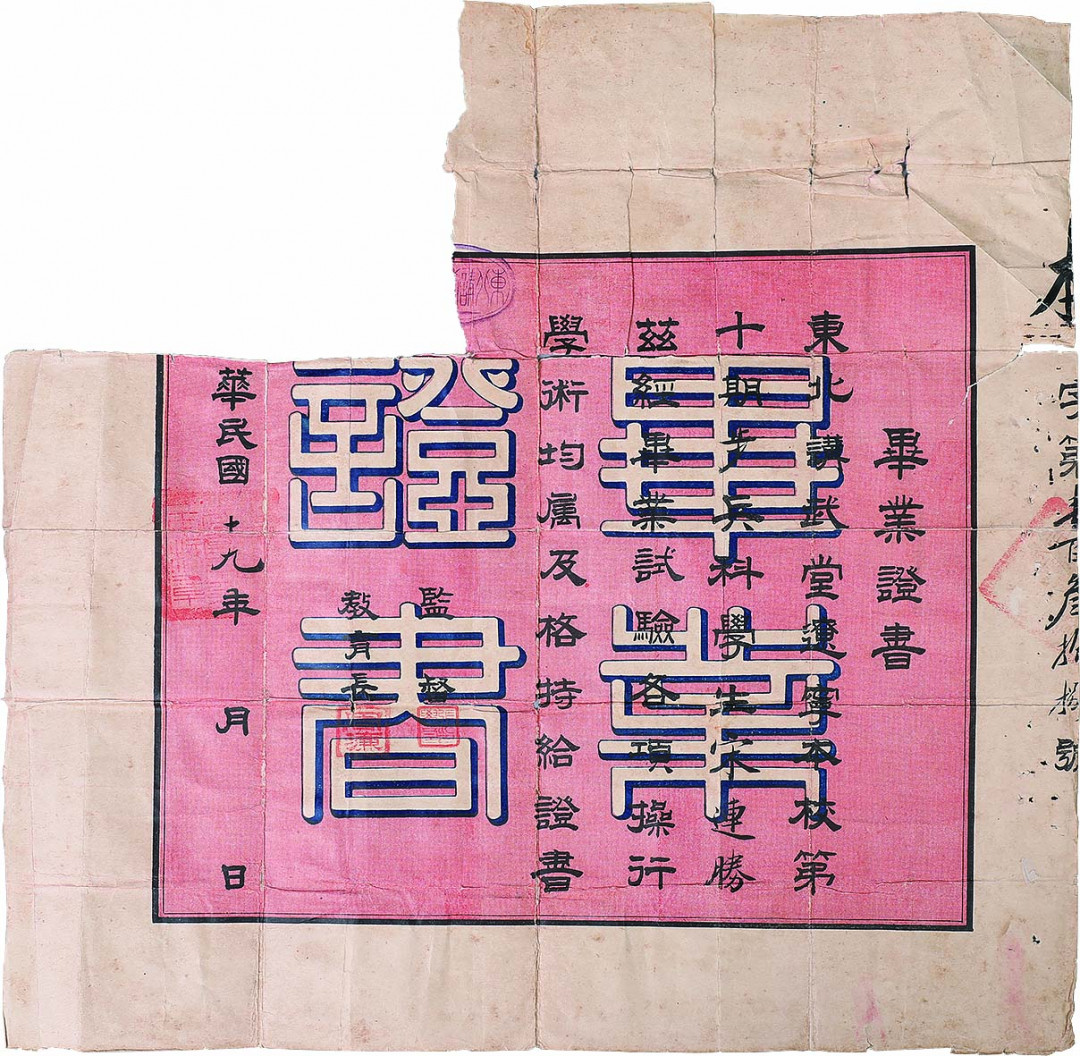 字第 百叁拾捌號
畢業證書
東北講武堂遼寧本校第
十期步兵科學生宋連勝
茲經畢業試驗各項操行
學術均属及格特給證書
監督
教育長
華民國十九年 月 日
畢業
證書